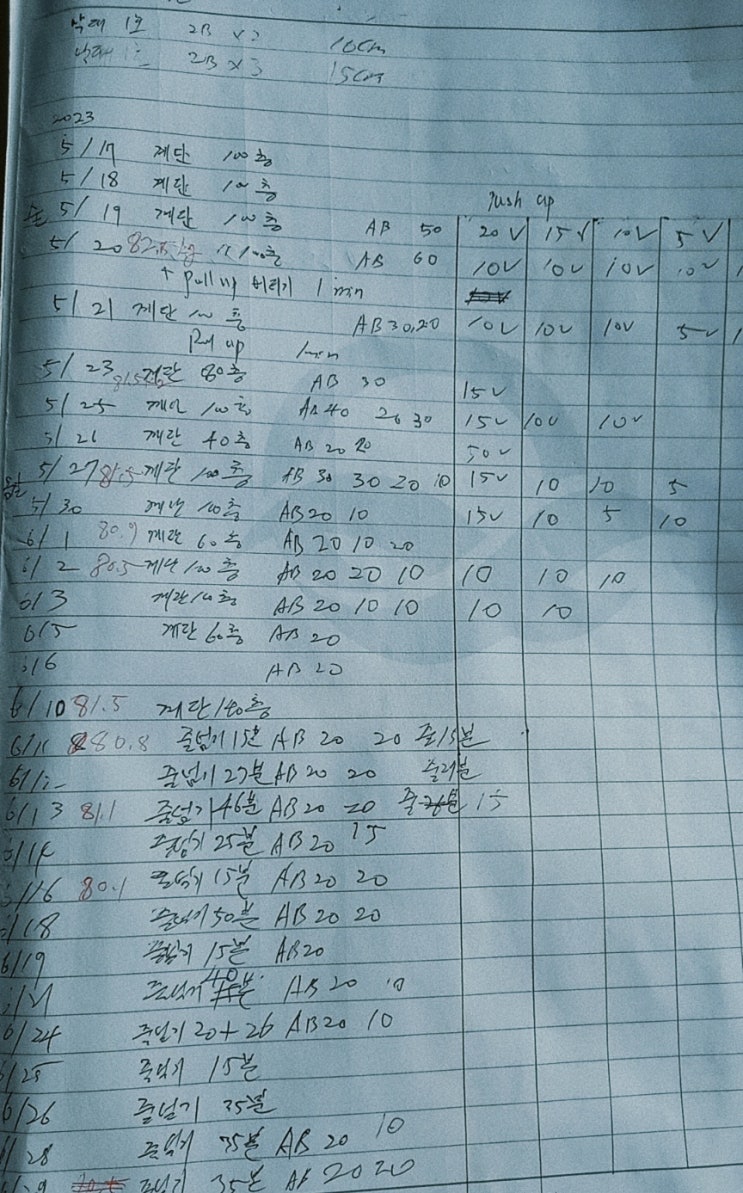 낚대 1호 2B x 2 10cm
낚대 1호 2B x 3 15cm
2023
5/17 계단 100층
5/18 계단 100층
Push up
5/19 계단 100층 AB 50 20V 15V 10V 5V
5/20 82. kg 100층 AB 60 10V 10V 10V 10V
+ pull up 버티기 1 min
5/21 계단 100층 AB 30,20 10V 10V 10V 5V
Pull up 1min
5/23 81.5 계단 80층 AB 30 15V
5/25 계단 100층 AB 40 20 30 15V 10V 10V
5/26 계단 40층 AB 20 20 50V
5/27 81.5 계단 100층 AB 30 30 20 10 15V 10 10 5
5/30 계단 100층 AB 20 10 15V 10 5 10
6/1 80.9 계단 60층 AB 20 10 20
6/2 80.5 계단 100층 AB 20 20 10 10 10 10
6/3 계단 100층 AB 20 10 10 10 10
6/5 계단 60층 AB 20
6/6 AB 20
6/10 81.5 계단 140층
6/11 80.8 줄넘기 15분 AB 20 20 줄 15분
6/12 줄넘기 27분 AB 20 20 줄 21분
6/13 81.1 줄넘기 46분 AB 20 20 줄 15
6/14 줄넘기 25분 AB 20 15
6/16 80.1 줄넘기 15분 AB 20 20
6/18 줄넘기 50분 AB 20 20
6/19 줄넘기 15분 AB 20
6/21 줄넘기 40분 AB 20 10
6/24 줄넘기 20+26 AB 20 10
6/25 줄넘기 15분
6/26 줄넘기 35분
6/28 줄넘기 35분 AB 20 10
6/29 줄넘기 35분 AB 20 20